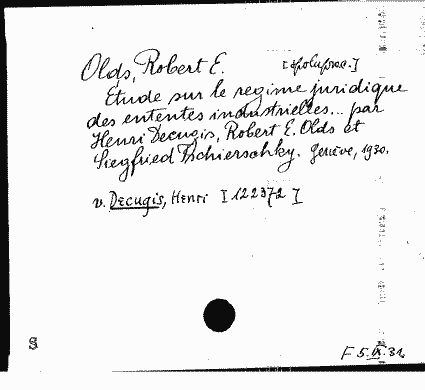 Olds, Robert E. [spoluprac.]
Etude sur le regime juridique
des ententes industrielles... par
Henri Decugis, Robert E. Olds et
Siegfried Tschierschky. Genève, 1930.
v. Decugis, Henri [122372]
S
F 5.IX.31.